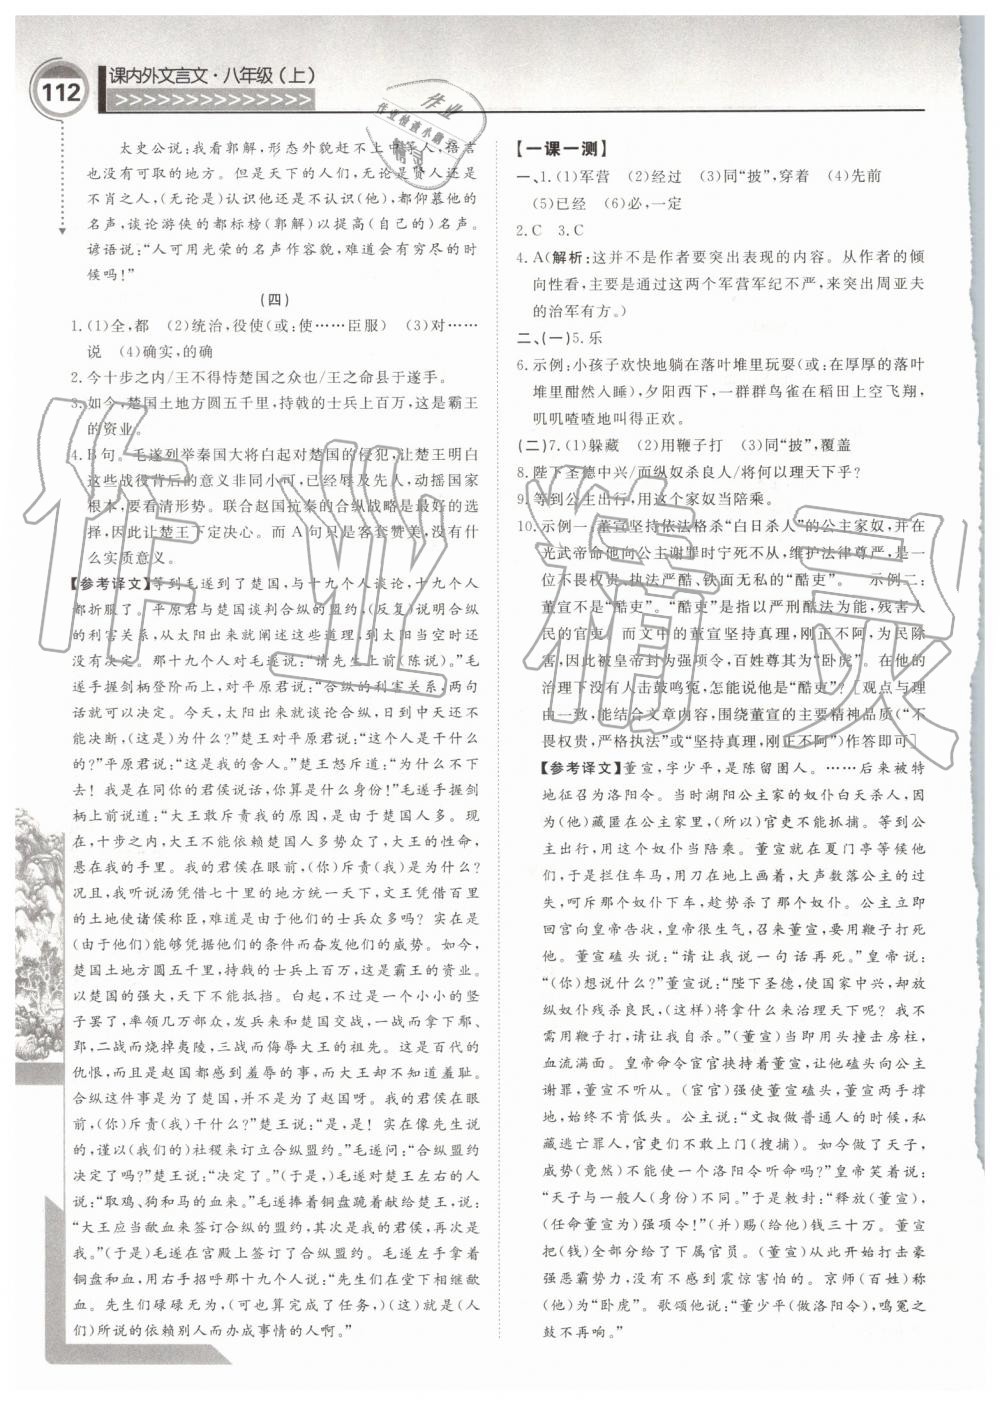 112
课内外文言文·八年级（上）
太史公说：我看郭解，形态外貌赶不上中等人，语言
也没有可取的地方。但是天下的人们，无论是贤人还是
不肖之人，（无论是）认识他还是不认识（他），都仰慕他的
名声，谈论游侠的都标榜（郭解）以提高（自己的）名声。
谚语说：“人可用光荣的名声作容貌，难道会有穷尽的时
候吗！”
（四）
1.（1）全，都　（2）统治，役使（或：使……臣服）　（3）对……
说　（4）确实，的确
2. 今十步之内/王不得恃楚国之众也/王之命县于遂手。
3. 如今，楚国土地方圆五千里，持戟的士兵上百万，这是霸王
的资业。
4. B句。毛遂列举秦国大将白起对楚国的侵犯，让楚王明白
这些战役背后的意义非同小可，已经辱及先人，动摇国家
根本，要看清形势。联合赵国抗秦的合纵战略是最好的选
择，因此让楚王下定决心。而A句只是客套赞美，没有什
么实质意义。
【参考译文】等到毛遂到了楚国，与十九个人谈论，十九个人
都折服了。平原君与楚国谈判合纵的盟约，（反复）说明合纵
的利害关系，从太阳出来就谈论这些道理，到太阳当空时还
没有决定。那十九个人对毛遂说：“请先生上前（陈说）。”毛
遂手握剑柄登阶而上，对平原君说：“合纵的利害关系，两句
话就可以决定。今天，太阳出来就谈论合纵，日到中天还不
能决断，（这是）为什么？”楚王对平原君说：“这个人是干什么
的？”平原君说：“这是我的舍人。”楚王怒斥道：“为什么不下
去！我是在同你的君侯说话，你算是什么身份！”毛遂手握剑
柄上前说道：“大王敢斥责我的原因，是由于楚国人多。现
在，十步之内，大王不能依赖楚国人多势众了，大王的性命，
悬在我的手里。我的君侯在眼前，（你）斥责（我）是为什么？
况且，我听说汤凭借七十里的地方统一天下，文王凭借百里
的土地使诸侯称臣，难道是由于他们的士兵众多吗？实在是
（由于他们）能够依据他们的条件而奋发他们的威势。如今，
楚国土地方圆五千里，持戟的士兵上百万，这是霸王的资业。
以楚国的强大，天下不能抵挡。白起，不过是一个小小的竖
子罢了，率领几万部众，发兵来和楚国交战，一战而拿下鄢、
郢，二战而烧掉夷陵，三战而侮辱大王的祖先。这是百代的
仇恨，而且是赵国都感到羞辱的事，而大王却不知道羞耻。
合纵这件事是为了楚国，并不是为了赵国呀。我的君侯在眼
前，（你）斥责（我）干什么？”楚王说：“是，是！实在像先生说
的，谨以（我们的）社稷来订立合纵盟约。”毛遂问：“合纵盟约
决定了吗？”楚王说：“决定了。”（于是，）毛遂对楚王左右的人
说：“取鸡、狗和马的血来。”毛遂捧着铜盘跪着献给楚王，说：
“大王应当歃血来签订合纵的盟约，其次是我的君侯，再次是
我。”（于是）毛遂在宫殿上签订了合纵盟约。毛遂左手拿着
铜盘和血，用右手招呼那十九个人说：“先生们在堂下相继歃
血。先生们碌碌无为，（可也算是完成了任务，）（这）就是（人
们）所说的依赖别人而办成事情的人啊。”
【一课一测】
一、1.（1）军营　（2）经过　（3）同“披”，穿着　（4）先前
（5）已经　（6）必，一定
2. C　3. C
4. A（解析：这并不是作者要突出表现的内容。从作者的倾
向性看，主要是通过这两个军营军纪不严，来突出周亚夫
的治军有方。）
二、（一）5. 乐
6. 示例：小孩子欢快地躺在落叶堆里玩耍（或：在厚厚的落叶
堆里酣然入睡），夕阳西下，一群群鸟雀在稻田上空飞翔，
叽叽喳喳地叫得正欢。
（二）7.（1）躲藏　（2）用鞭子打　（3）同“披”，覆盖
8. 陛下圣德中兴/而纵奴杀良人/将何以理天下乎？
9. 等到公主出行，用这个家奴当陪乘。
10. 示例一：董宣坚持依法格杀“白日杀人”的公主家奴，并在
光武帝命他向公主谢罪时宁死不从，维护法律尊严，是一
位不畏权贵、执法严酷、铁面无私的“酷吏”。　示例二：
董宣不是“酷吏”。“酷吏”是指以严刑酷法为能，残害人
民的官吏。而文中的董宣坚持真理，刚正不阿，为民除
害，因此被皇帝封为强项令，百姓尊其为“卧虎”。在他的
治理下没有人击鼓鸣冤，怎能说他是“酷吏”？［观点与理
由一致，能结合文章内容，围绕董宣的主要精神品质（“不
畏权贵，严格执法”或“坚持真理，刚正不阿”）作答即可］
【参考译文】董宣，字少平，是陈留圉人。……后来被特
地征召为洛阳令。当时湖阳公主家的奴仆白天杀人，因
为（他）藏匿在公主家里，（所以）官吏不能抓捕。等到公
主出行，用这个奴仆当陪乘。董宣就在夏门亭等候他
们，于是拦住车马，用刀在地上画着，大声数落公主的过
失，呵斥那奴仆下车，趁势杀了那奴仆。公主立即
回宫向皇帝告状，皇帝很生气，召来董宣，要用鞭子打死
他。董宣磕头说：“请让我说一句话再死。”皇帝说：
“（你）想说什么？”董宣说：“陛下圣德，使国家中兴，却放
纵奴仆残杀良民，（这样）将拿什么来治理天下呢？我不
需用鞭子打，请让我自杀。”（于是）就用头去撞柱子，
血流满面。皇帝命令宦官扶持着董宣，让他磕头向公主
谢罪，董宣不听从。（宦官）强使董宣磕头，董宣两手撑
地，始终不肯低头。公主说：“文叔做普通人的时候，私
藏逃亡罪人，官吏们不敢上门（搜捕）。如今做了天子，
威势（竟然）不能使一个洛阳令听命吗？”皇帝笑着说：
“天子与一般人（身份）不同。”于是敕封：“释放（董宣），
（任命董宣为）强项令！”（并）赐（给他）钱三十万。董宣
把（钱）全部分给了下属官员。（董宣）从此开始打击豪
强恶霸势力，没有谁不因此而震惊害怕的。京师（百姓）称
（他）为“卧虎”。歌颂他说：“董少平（做洛阳令），鸣冤之
鼓不再响。”
作业
作业检查小助手
精灵
作业精灵